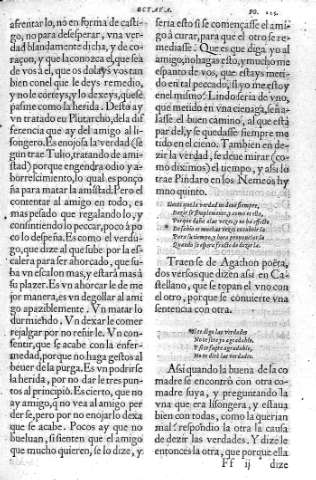 OCTAVA.
afrentarlo, no en forma de casti-
go, no para desesperar, vna ver-
dad blandamente dicha, y de co-
raçon, y que la conozca el, que sea
de vos à el, que os dolays vos tan
bien con el que le deys remedio,
y no le correys, y lo dexeys, que se
pasme como la herida. Desto ay
vn tratado en Plutarcho, de la dif
ferencia que ay del amigo al li-
songero. Es enojosa la verdad (se
gun trae Tulio, tratando de amis-
tad) porque engendra odio y a-
borrecimiento, lo qual es ponço-
ña para matar la amistad. Pero el
contentar al amigo en todo, es
mas pesado que regalando lo, y
consintiendo lo peccar, poco à po
co lo despeña. Es como el verdu-
go, que dize al que sube por la es-
calera para ser ahorcado, que su-
ba vn escalon mas, y estará mas à
su plazer. Es vn ahorcar le de me
jor manera, es vn degollar al ami
go apaziblemente. Vn matar lo
durmiendo. Vn dexar le comer
rejalgar por no reñir le. Vn con-
sentir, que se acabe con la enfer-
medad, porque no haga gestos al
beuer de la purga. Es vn podrirse
la herida, por no dar le tres pun-
tos al principio. Es cierto, que no
ay amigo, que no vea al amigo per
derse, pero por no enojarlo dexa
que se acabe. Pocos ay que no
bueluan, si sienten que el amigo
que mucho quieren, se lo dize, y
seria esto si se començasse el ami-
gò à curar, para que el otro se re-
mediasse? Que es que diga yo al
amigo, no hagas esto, y mucho me
espanto de vos, que estays meti-
do en tal pecado, si yo me esto y
en el mismo? Lindo seria de vno,
que metido en vna cienaga, señas
lasse el buen camino, al que està
par del, y se quedasse siempre me
tido en el cieno. Tambien en de-
zir la verdad, se deue mirar (co-
mo diximos) el tiempo, y assi lo
trae Pindaro en los Nemeos hy
mno quinto.
Traense de Agathon poëta,
dos versos que dizen assi en Ca-
stellano, que se topan el vno con
el otro, porque se conuierte vna
sentencia con otra.
Si te digo las verdades
No te sere yo agradable,
Y si te fuere agradable,
No te dirè las verdades.
Assi quando la buena de la co
madre se encontrò con otra co-
madre suya, y preguntando la
vna que era lisongera, y estaua
bien con todas, como la querian
mal? respondio la otra la causa
de dezir las verdades. Y dize le
entonces la otra, que porque ella
Ff ij dize